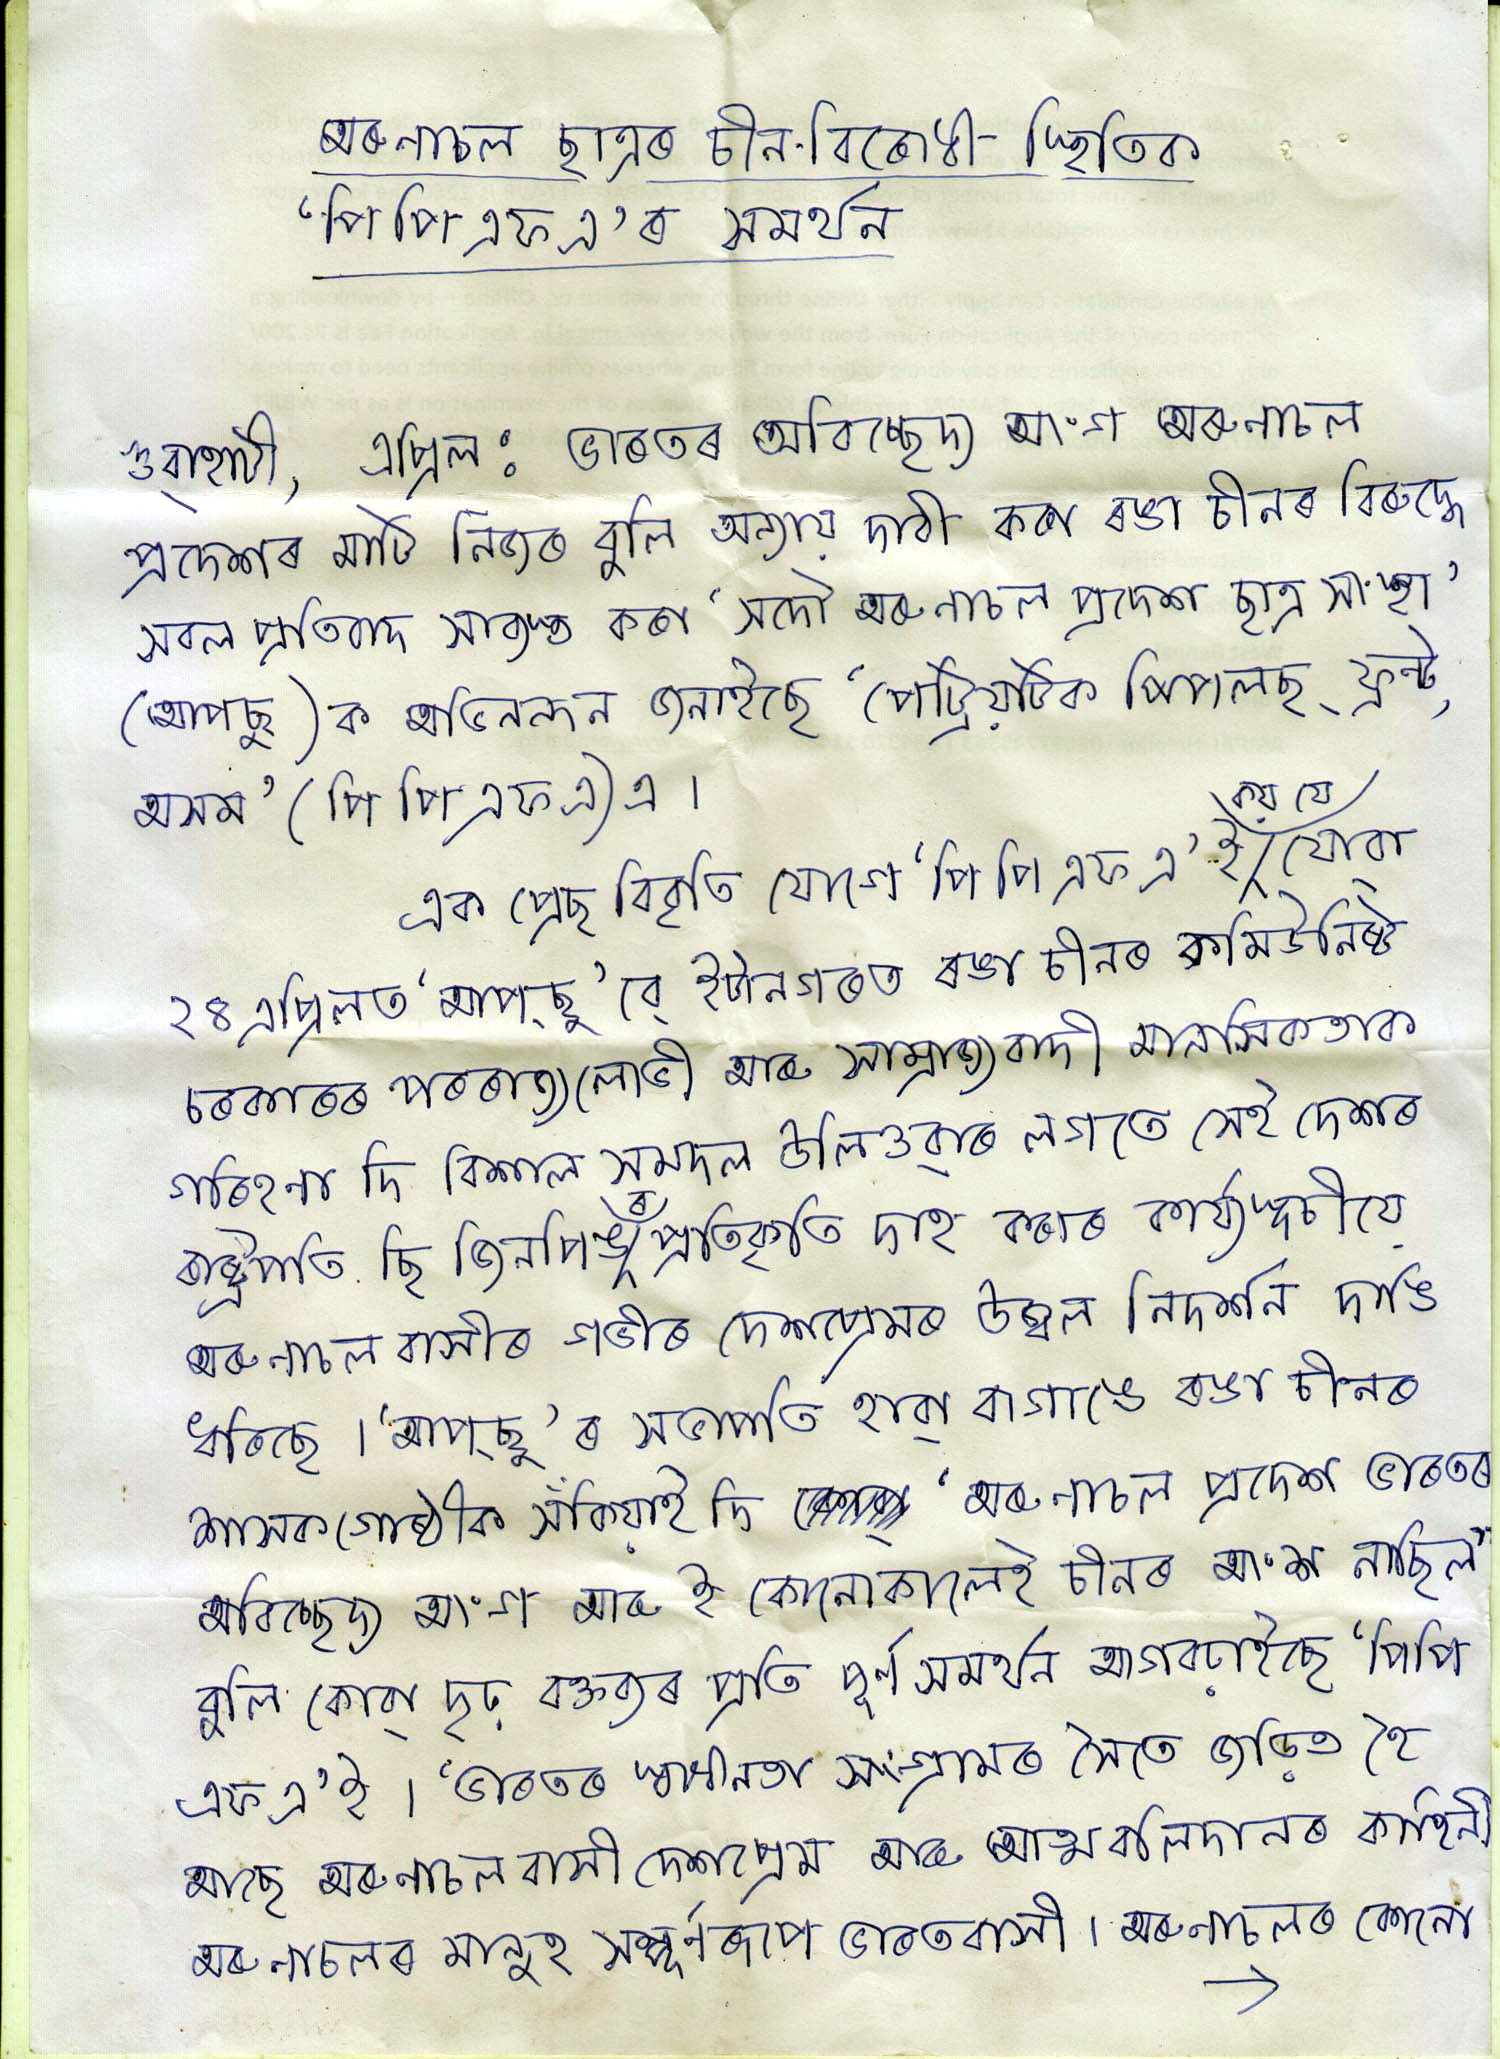 অৰুনাচল ছাত্ৰৰ চীন-বিৰোধী স্থিতিক
‘পি পি এফ এ’ৰ সমৰ্থন
গুৱাহাটী, এপ্ৰিল : ভাৰতৰ অবিচ্ছেদ্য অংগ অৰুনাচল
প্ৰদেশৰ মাটি নিজৰ বুলি অন্যায় দাবী কৰা ৰঙা চীনৰ বিৰুদ্ধে
সবল প্ৰতিবাদ সাব্যস্ত কৰা ‘সদৌ অৰুনাচল প্ৰদেশ ছাত্ৰ সংস্থা’
(আপছু)ক অভিনন্দন জনাইছে ‘পেট্ৰিয়টিক পিপলছ্ ফ্ৰন্ট,
অসম’ (পি পি এফ এ)এ ।
এক প্ৰেছ বিবৃতি যোগে ‘পি পি এফ এ’ ই কয় যে যোৱা
২৪ এপ্ৰিলত ‘আপ্ছু’ৱে ইটানগৰত ৰঙা চীনৰ কমিউনিষ্ট
চৰকাৰৰ পৰৰাজ্যলোভী আৰু সাম্ৰাজ্যবাদী মানসিকতাক
গৰিহনা দি বিশাল সমদল উলিওৱাৰ লগতে সেই দেশৰ
ৰাষ্ট্ৰপতি ছি জিনপিঙৰ প্ৰতিকৃতি দাহ কৰাৰ কাৰ্য্যসূচীয়ে
অৰুনাচলবাসীৰ গভীৰ দেশপ্ৰেমৰ উজ্বল নিদৰ্শন দাঙি
ধৰিছে । ‘আপ্ছু’ৰ সভাপতি হাৱা বাগাঙে ৰঙা চীনৰ
শাসকগোষ্ঠীক সঁকিয়াই দি ‘অৰুনাচল প্ৰদেশ ভাৰতৰ
অবিচ্ছেদ্য অংগ আৰু ই কোনোকালেই চীনৰ অংশ নাছিল”
বুলি কোৱা দৃঢ় বক্তব্যৰ প্ৰতি পূৰ্ণ সমৰ্থন আগবঢ়াইছে ‘পি পি
এফ এ’ই । ‘ভাৰতৰ স্বাধীনতা সংগ্ৰামৰ সৈতে জড়িত হৈ
আছে অৰুনাচলবাসী দেশপ্ৰেম আৰু আত্মবলিদানৰ কাহিনী
অৰুনাচলৰ মানুহ সম্পূৰ্ণৰূপে ভাৰতবাসী । অৰুনাচলৰ কোনো
→